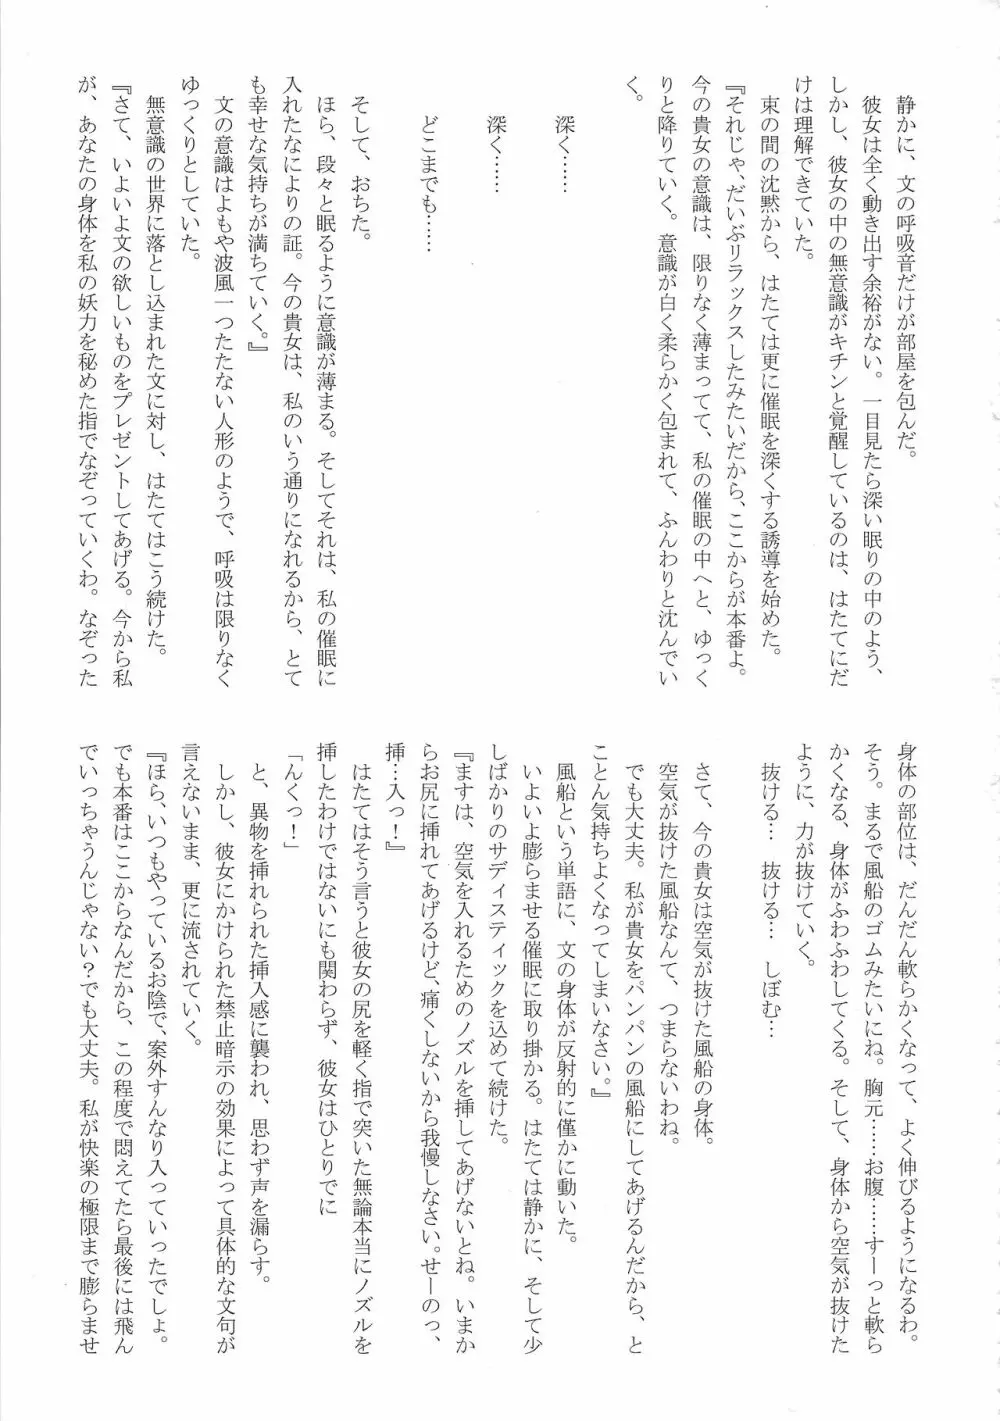 静かに、文の呼吸音だけが部屋を包んだ。
彼女は全く動き出す余裕がない。一目見たら深い眠りの中のよう、
しかし、彼女の中の無意識がキチンと覚醒しているのは、はたてにだ
けは理解できていた。
束の間の沈黙から、はたては更に催眠を深くする誘導を始めた。
『それじゃ、だいぶリラックスしたみたいだから、ここからが本番よ。
今の貴女の意識は、限りなく薄まってて、私の催眠の中へと、ゆっく
りと降りていく。意識が白く柔らかく包まれて、ふんわりと沈んでい
く。
深く……
深く……
どこまでも……
そして、おちた。
ほら、段々と眠るように意識が薄まる。そしてそれは、私の催眠に
入れたなによりの証。今の貴女は、私のいう通りになれるから、とて
も幸せな気持ちが満ちていく。』
文の意識はよもや波風一つたたない人形のようで、呼吸は限りなく
ゆっくりとしていた。
無意識の世界に落とし込まれた文に対し、はたてはこう続けた。
『さて、いよいよ文の欲しいものをプレゼントしてあげる。今から私
が、あなたの身体を私の妖力を秘めた指でなぞっていくわ。なぞった
身体の部位は、だんだん軟らかくなって、よく伸びるようになるわ。
そう。まるで風船のゴムみたいにね。胸元……お腹……すーっと軟ら
かくなる、身体がふわふわしてくる。そして、身体から空気が抜けた
ように、力が抜けていく。
抜ける…　抜ける…　しぼむ…
さて、今の貴女は空気が抜けた風船の身体。
空気が抜けた風船なんて、つまらないわね。
でも大丈夫。私が貴女をパンパンの風船にしてあげるんだから、と
ことん気持ちよくなってしまいなさい。』
風船という単語に、文の身体が反射的に僅かに動いた。
いよいよ膨らませる催眠に取り掛かる。はたては静かに、そして少
しばかりのサディスティックを込めて続けた。
『ますは、空気を入れるためのノズルを挿してあげないとね。いまか
らお尻に挿れてあげるけど、痛くしないから我慢しなさい。せーのっ、
挿…入っ！』
はたてはそう言うと彼女の尻を軽く指で突いた無論本当にノズルを
挿したわけではないにも関わらず、彼女はひとりでに
「んくっ！」
と、異物を挿れられた挿入感に襲われ、思わず声を漏らす。
しかし、彼女にかけられた禁止暗示の効果によって具体的な文句が
言えないまま、更に流されていく。
『ほら、いつもやっているお陰で、案外すんなり入っていったでしょ。
でも本番はここからなんだから、この程度で悶えてたら最後には飛ん
でいっちゃうんじゃない？でも大丈夫。私が快楽の極限まで膨らませ